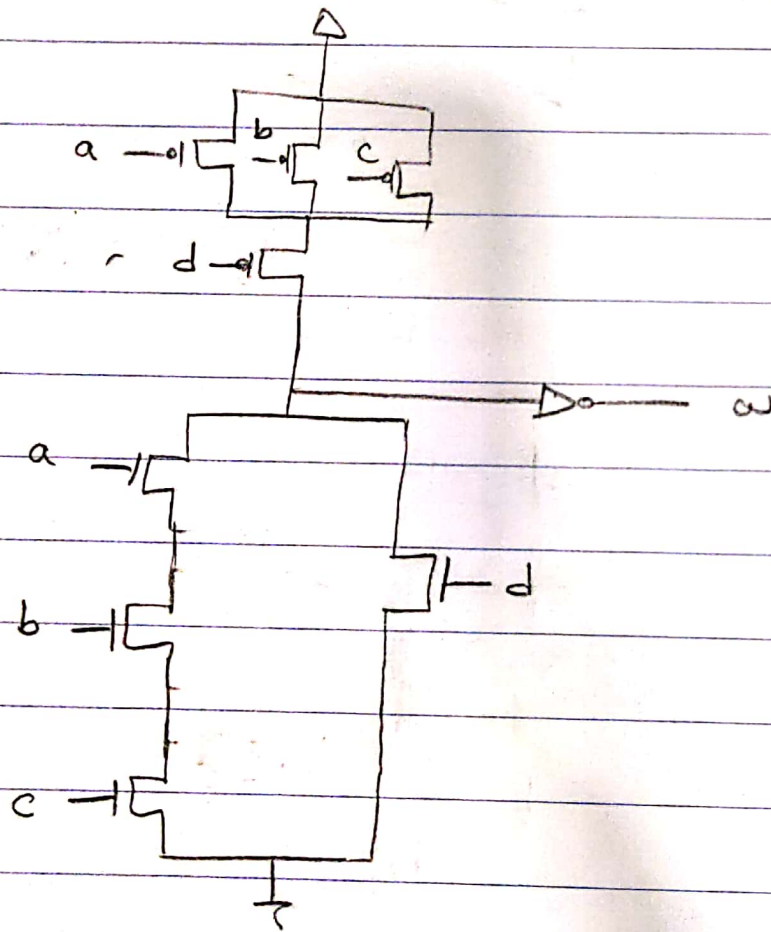 a b c
d
ω
a
d
b
c